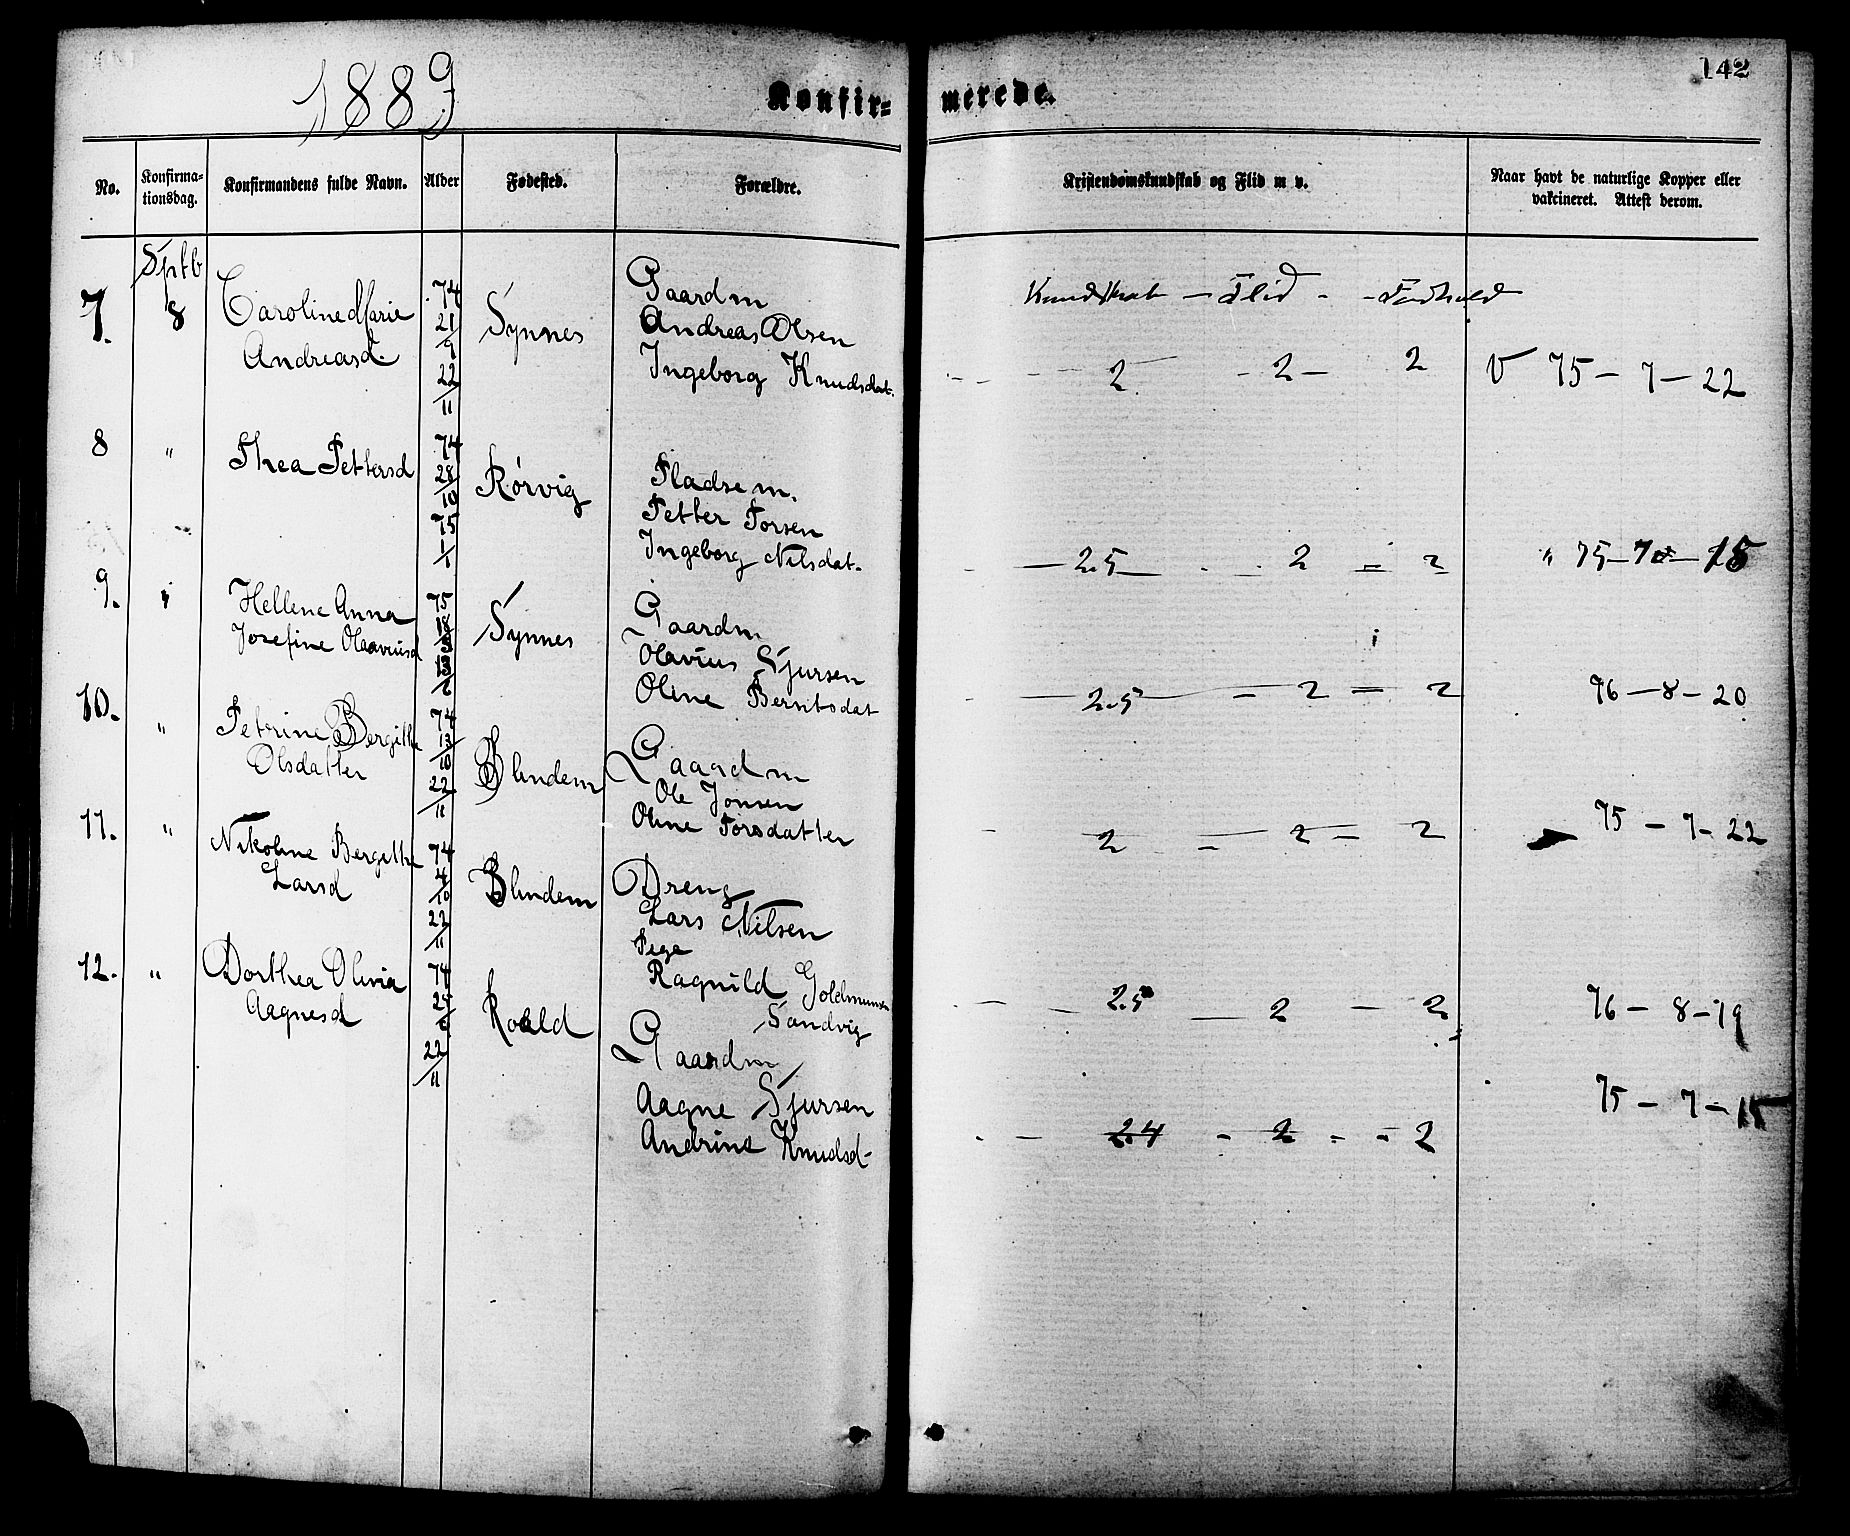 1889
Konfir-
merede.
142
No.
Konfirma-
tionsdag.
Konfirmandens fulde Navn.
Alder
Fødested.
Forældre.
Kristendomskundskab og Flid m v.
Naar havt de naturlige Kopper eller
vakcineret. Attest derom.
Sptb
7.
8
Caroline Marie
Andreasd.
74
21/9
22/11
Synnes
Gaardm
Andreas Olsen
Ingeborg Knudsdat.
Kundskab — Flid - - Forhold
2 - 2 - 2
V 75 - 7 - 22
8
"
Thea Pettersd
74
28/10
75
1/1
Rørvig
Pladsem.
Petter Torsen
Ingeborg Nilsdat.
2.5 2 = 2
" 75 - 7 - 15
9.
Hellene Anna
Josefine Olaaviusd
75
Synnes
Gaardm
Olavius Sjursen
Oline Berntsdat
2.5 - 2 = 2
76 - 8 - 20
10.
"
Petrine Bergithe
Olsdatter
74
13/10
22/11
Blindem
Gaardm
Ole Jonsen
Oline Torsdatter
2 = 2 - 2
75 - 7 - 22
11.
"
Nikoline Bergithe
Larsd
74
4/10
22/11
Blindem
Dreng
Lars Nilsen
Pige
Ragnild Goldmunsen
Sandvig
2.5 - 2 - 2
76 - 8 - 19
12.
"
Dorthea Olivia
Aagnesd
74
22/11
Roald
Gaardm
Aagne Sjursen
Andrine Knudsd-
2.4 - 2 - - 2
75 - 7 - 15